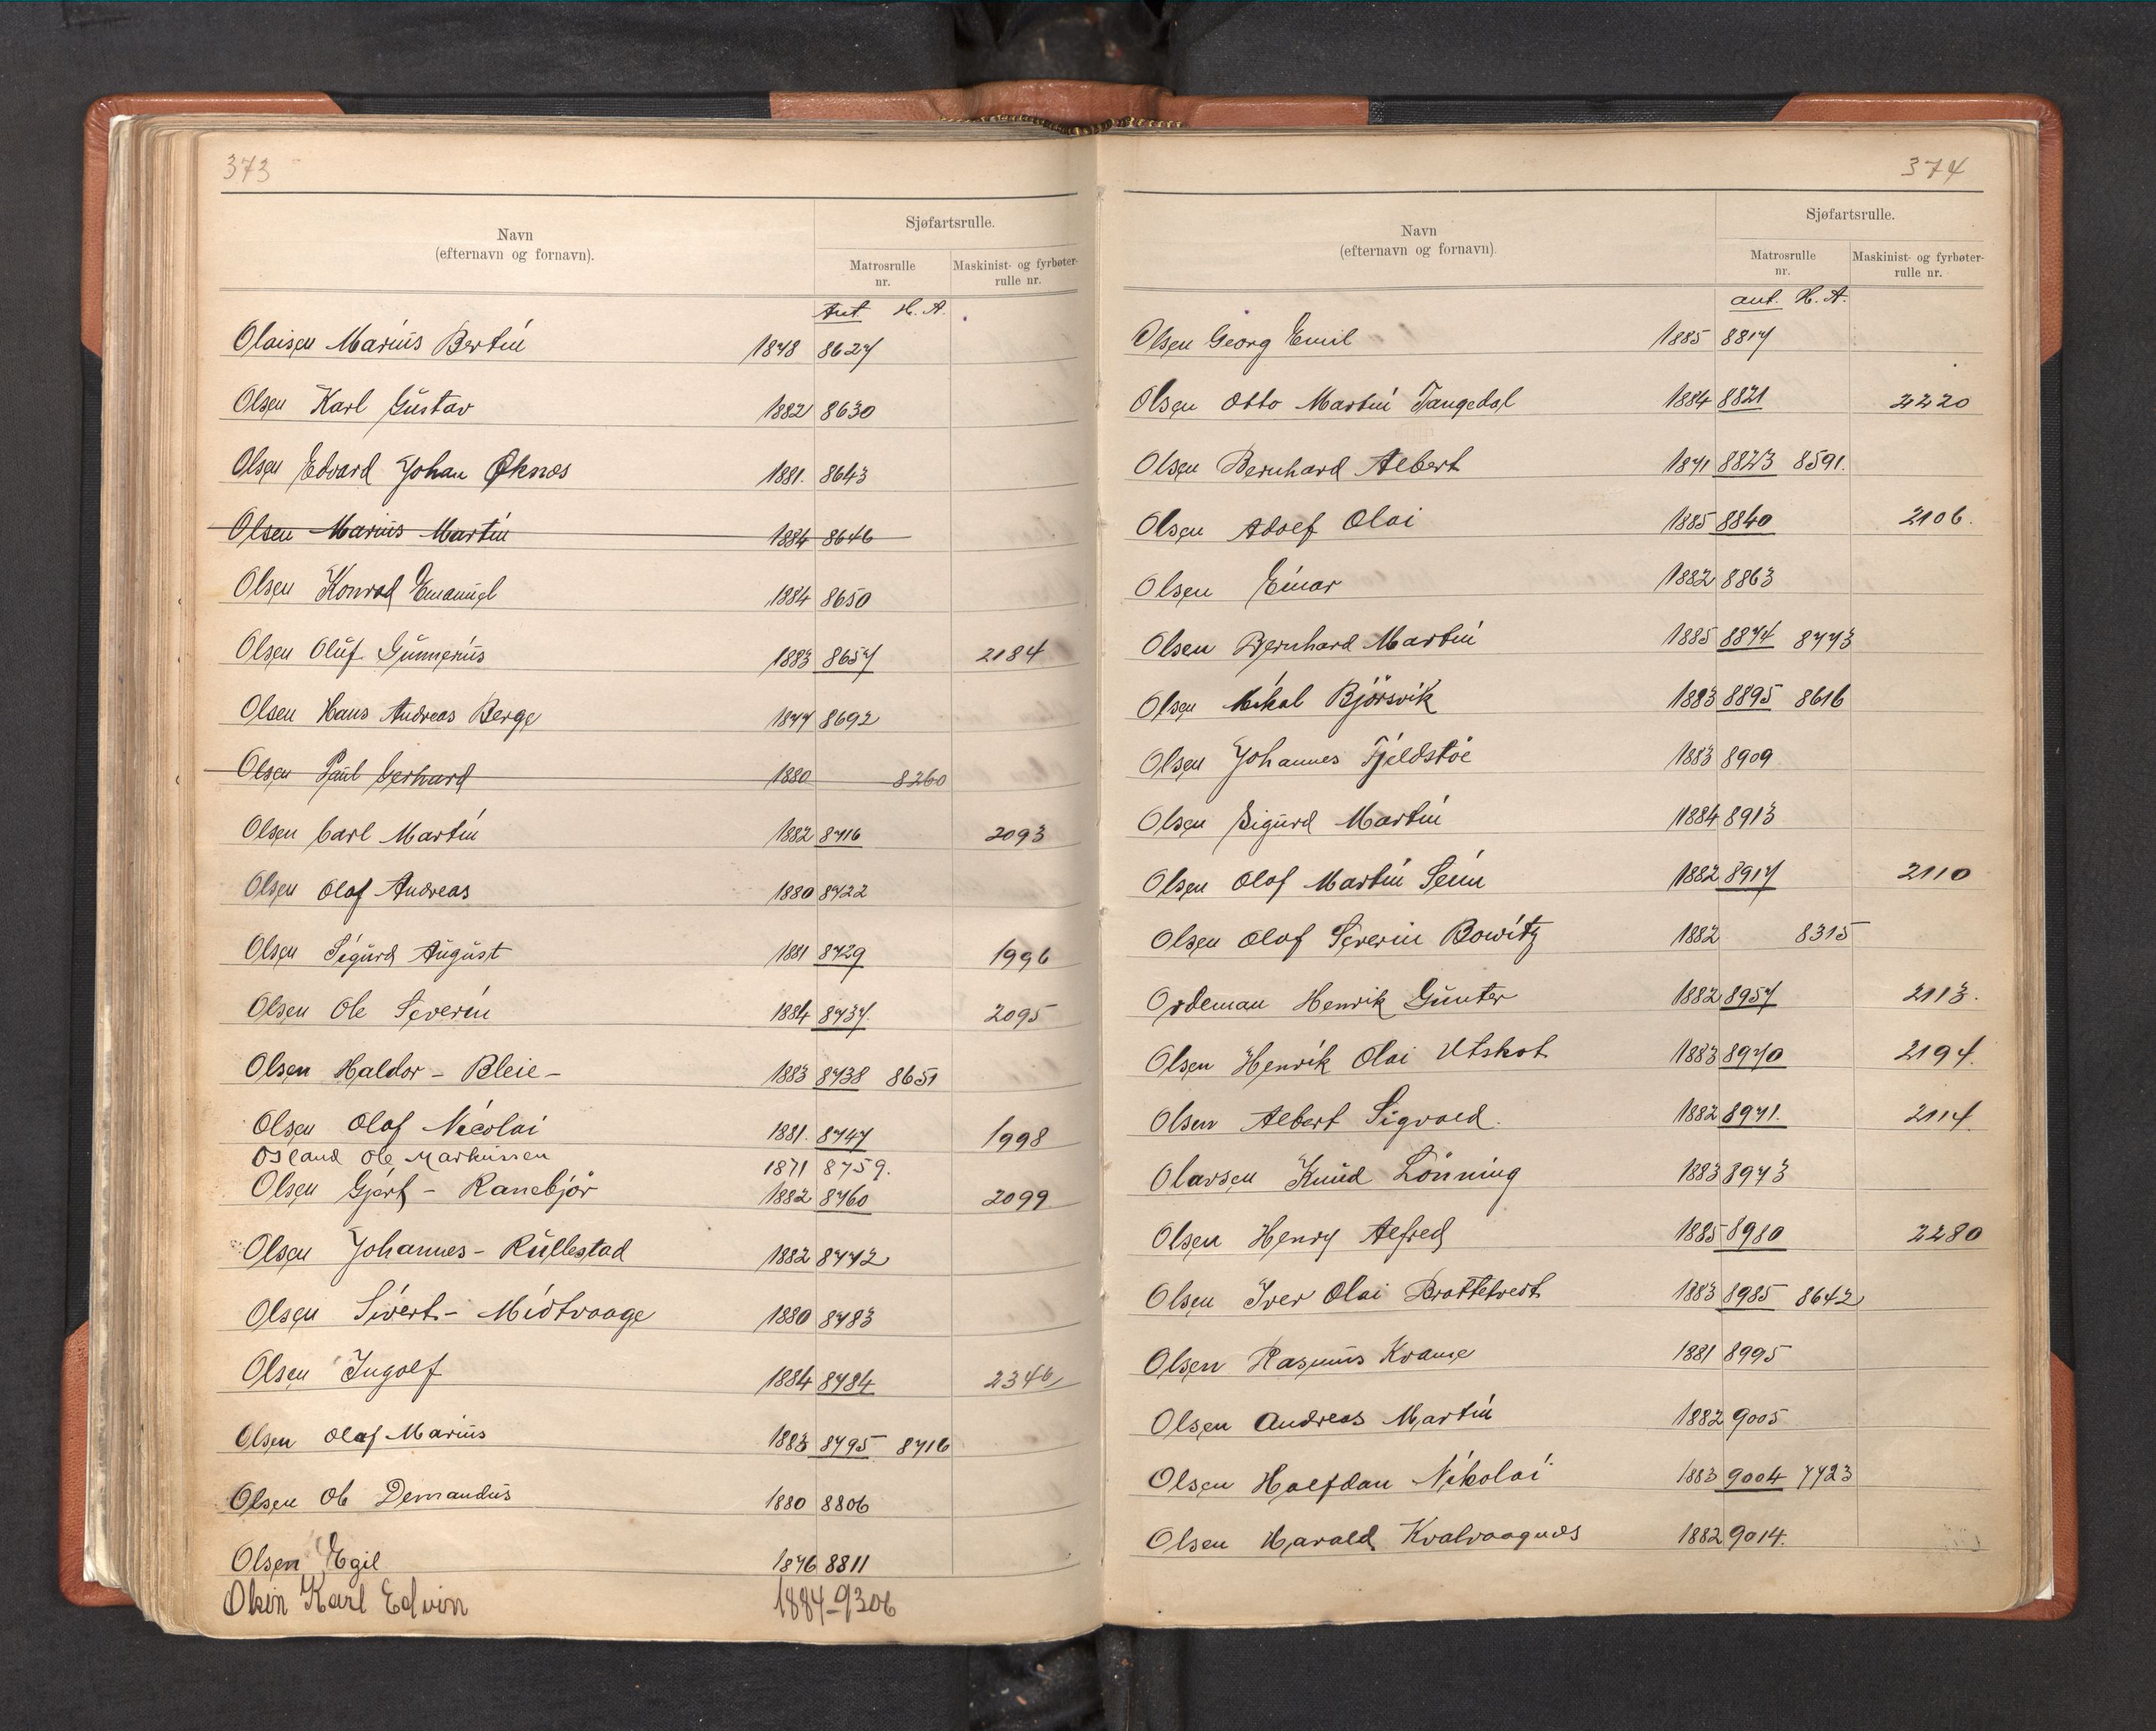 373
Navn
(efternavn og fornavn).
Sjøfartsrulle.
Matrosrulle
nr.
Maskinist- og fyrbøter-
rulle nr.
Ant. H. A.
Olaisen Marius Bertin 1878 8627
Olsen Karl Gustav 1882 8630
Olsen Edvard Johan Øknæs 1881. 8643
Olsen Marius Martin 1884 8646
Olsen Konrad Emanuel 1884 8650
Olsen Oluf Gunnerius 1883 8657 2184
Olsen Hans Andreas Berge 1877 8692
Olsen Paul Gerhard 1880 8260
Olsen Carl Martin 1882 8716 2093
Olsen Olaf Andreas 1880 8722
Olsen Sigurd August 1881 8729 1996
Olsen Ole Severin 1884 8737. 2095
Olsen Haldor - Bleie - 1883 8738 8651
Olsen Olaf Nicolai 1881. 8747 1998
Osland Ole Markussen 1871 8759.
Olsen Gjert - Ranebjör 1882 8760 2099
Olsen Johannes - Rullestad 1882 8772
Olsen Sivert - Midtvaage 1880 8783
Olsen Ingolf 1884 8784 2346
Olsen Olaf Marius 1883 8795 8716
Olsen Ole Demandus 1880 8806
Olsen Egil 1876 8811
Olsen Karl Edvin 1884-9306
374
Navn
(efternavn og fornavn).
Sjøfartsrulle.
Matrosrulle
nr.
Maskinist- og fyrbøter-
rulle nr.
ant. H. A.
Olsen Georg Emil 1885 8817
Olsen Otto Martin Tangedal 1884 8821 2220
Olsen Bernhard Albert 1871 8823 8591.
Olsen Adolf Olai 1885 8840 2106.
Olsen Einar 1882 8863
Olsen Bernhard Martin 1885 8874 8773
Olsen Mikal Björsvik 1883 8895 8616
Olsen Johannes Fjeldstöe 1883 8909
Olsen Sigurd Martin 1884 8913
Olsen Olaf Martin Seim 1882 8917 2110
Olsen Olaf Severin Bowitz 1882 8315
Ordeman Henrik Günter 1882 8957 2113.
Olsen Henrik Olai Utskot 1883 8970 2194.
Olsen Albert Sigvald. 1882 8971. 2114.
Olavsen Knud Lönning 1883 8973
Olsen Henry Alfred 1885 8980 2280
Olsen Iver Olai Brattetvedt 1883 8985 8642
Olsen Rasmus Kvame 1881 8995
Olsen Andreas Martin 1882 9005
Olsen Halfdan Nikolai 1883 9004 7723
Olsen Harald Kvalvaagnæs 1882 9014.